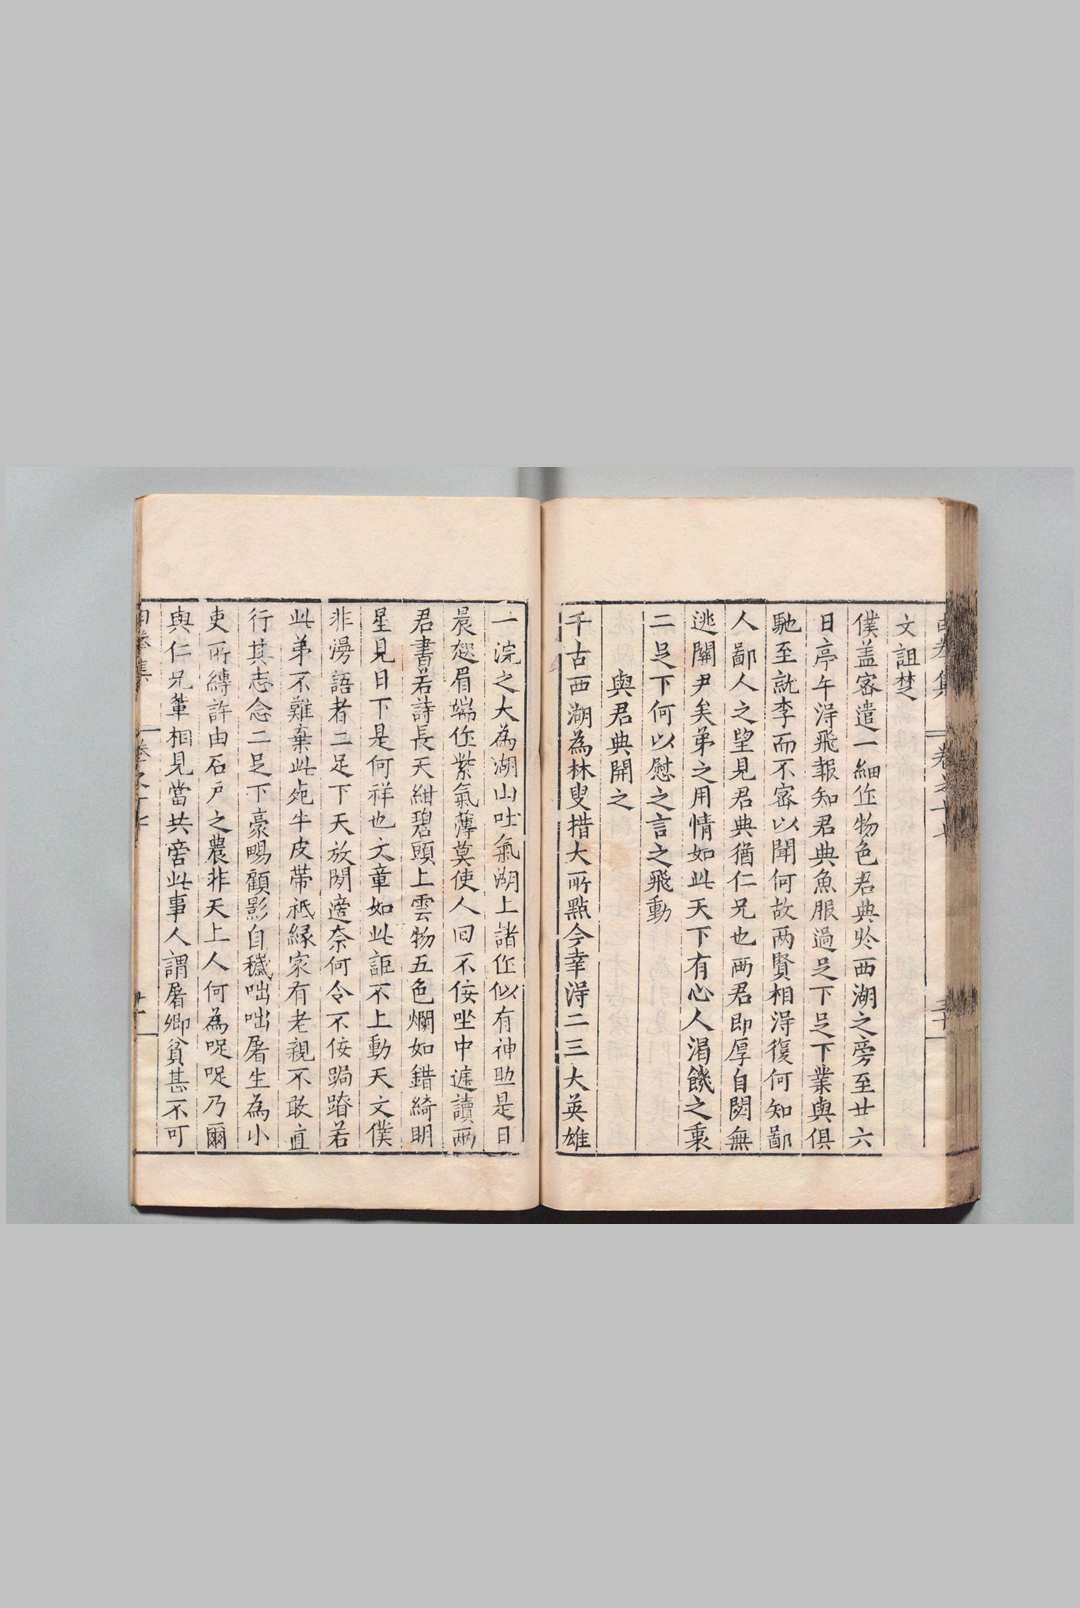 文詛楚
僕盖密遣一細作物色君典於西湖之旁至廿六
日亭午淂飛報知君典魚服過足下足下業與俱
馳至就李而不密以聞何故两賢相淂復何知鄙
人鄙人之望見君典猶仁兄也两君即厚自閟無
逃關尹矣弟之用情如此天下有心人渴饑之東
二足下何以慰之言之飛動
與君典開之
千古西湖為林叟措大所㸃今幸淂二三大英雄
一浣之大為湖山吐氣湖上諸作似有神助是日
晨起眉端作紫氣薄莫使人囬不佞坐中遽讀兩
君書若詩長天紺碧頭上雲物五色爛如錯綺明
星見日下是何祥也文章如此詎不上動天文僕
非漫語者二足下天放閒遊奈何令不佞跼蹐若
此弟不難棄此兜牛皮帶祇緣家有老親不敢直
行其志念二足下豪暢顧影自穢咄咄屠生為小
吏所縛許由石戶之農非天上人何為哫哫乃爾
與仁兄輩相見當共啻此事人謂屠卿貧甚不可
白榆集
卷之十七